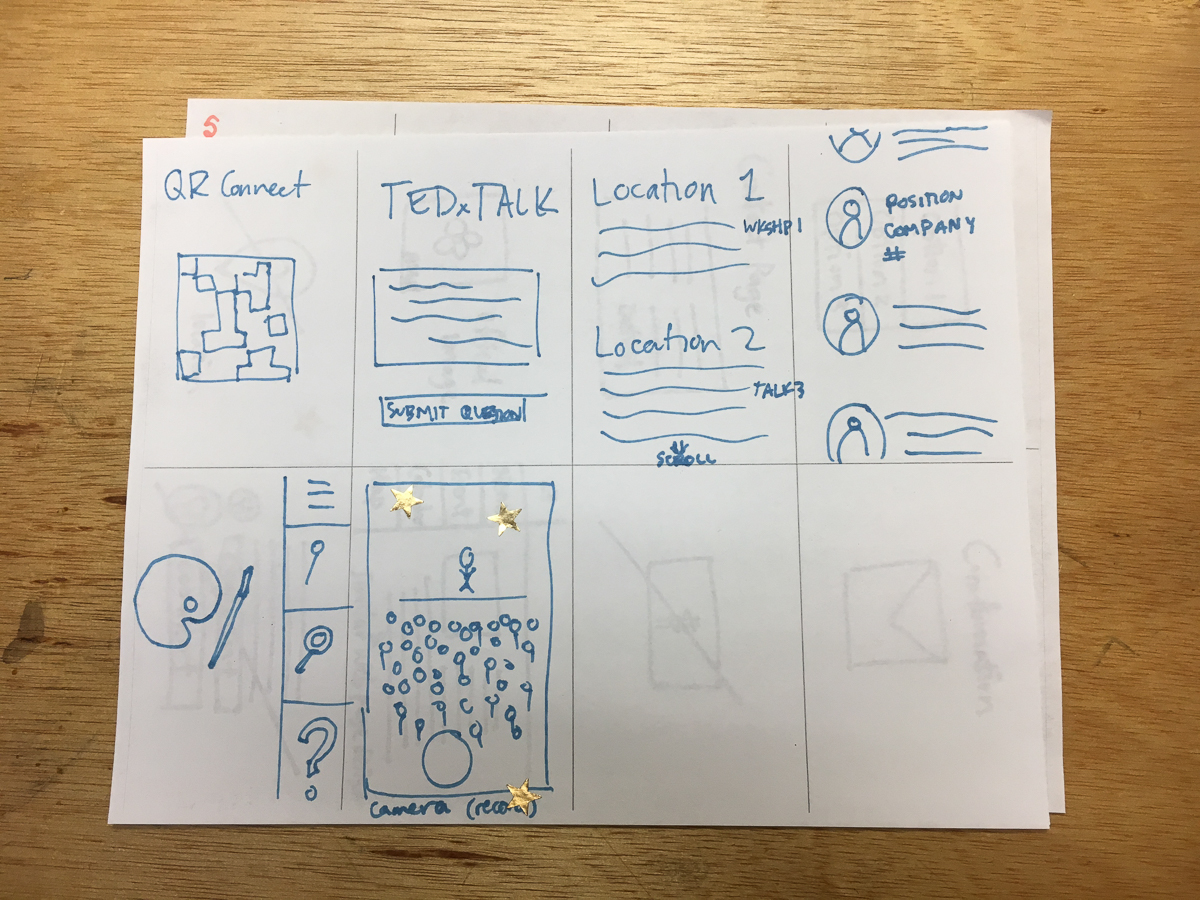 S
QR Connect
TEDxTALK
SUBMIT QUESTION
Location 1
WKSHP 1
Location 2
TALK 3
SCROLL
POSITION
COMPANY
#
?
camera (record)